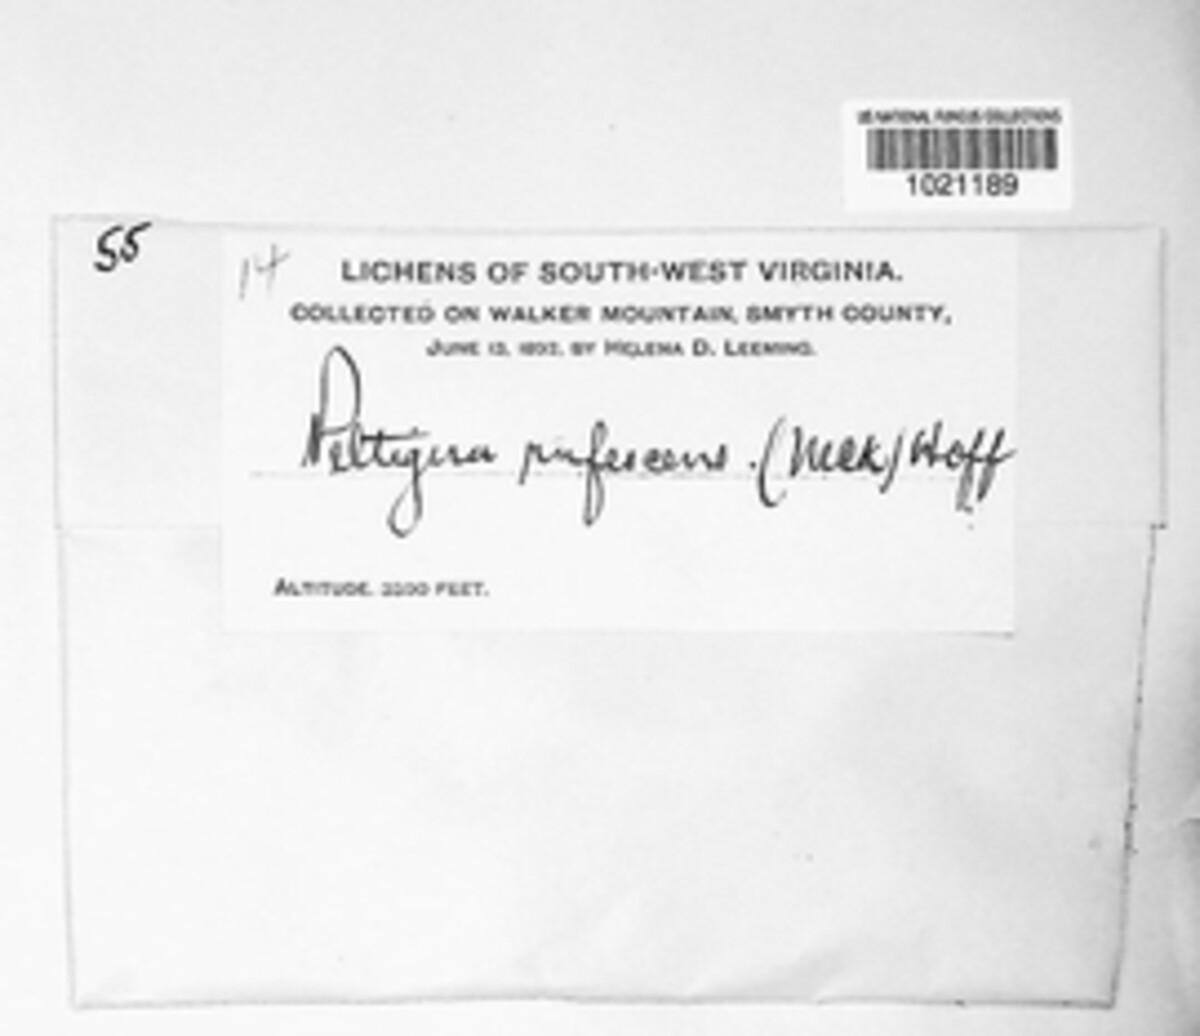 US NATIONAL FUNGUS COLLECTIONS
1021189
55
14
LICHENS OF SOUTH-WEST VIRGINIA.
COLLECTED ON WALKER MOUNTAIN, SMYTH COUNTY,
JUNE 13, 1892, BY HELENA D. LEEMING.
Peltigera rufescens. (Neck) Hoff
ALTITUDE, FEET.